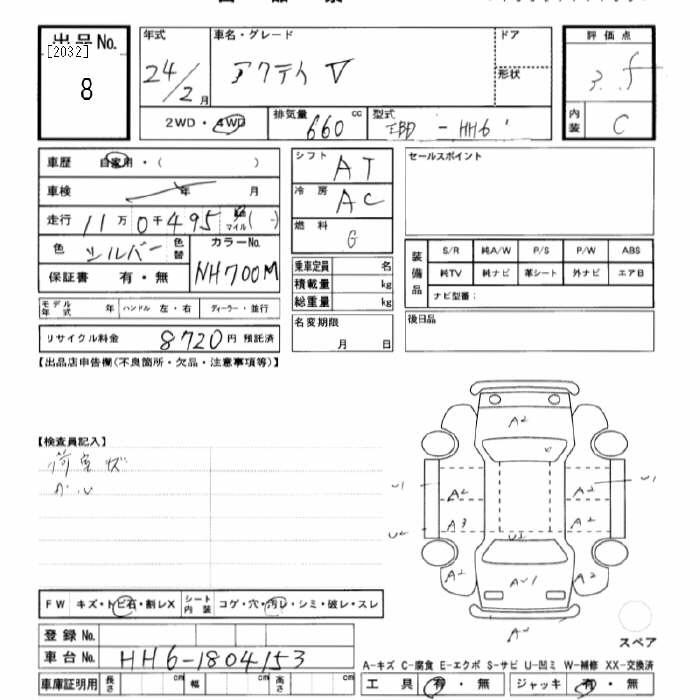 出品No.
[2032]
8
年式
24/2月
車名・グレード
アクティ V
ドア
形状
評価点
3.5
内装
C
2WD・4WD
排気量
660 cc
型式
EBD-HH6
車歴 自家用・( )
車検 年 月
走行 11万0千495 km マイル ( )
色 シルバー 色替
カラーNo.
NH700M
保証書 有・無
モデル年式 年 ハンドル 左・右 ディーラー・並行
リサイクル料金 8720円 預託済
シフト AT
冷房 AC
燃料 G
乗車定員 名
積載量 kg
総重量 kg
名変期限
月 日
セールスポイント
装備品
S/R 純A/W P/S P/W ABS
純TV 純ナビ 革シート 外ナビ エアB
ナビ型番:
後日品
【出品店申告欄(不良箇所・欠品・注意事項等)】
【検査員記入】
荷室キズ
A2
U1
A2
A2
U1
U2
A3
A2
A2
A2
FW キズ・トビ石・割レX シート内装 コゲ・穴・汚レ・シミ・破レ・スレ
登録No.
車台No. HH6-1804153
スペア
A-キズ C-腐食 E-エクボ S-サビ U-凹ミ W-補修 XX-交換済
車庫証明用 長さ cm 幅 cm 高さ cm
工具 有・無 ジャッキ 有・無